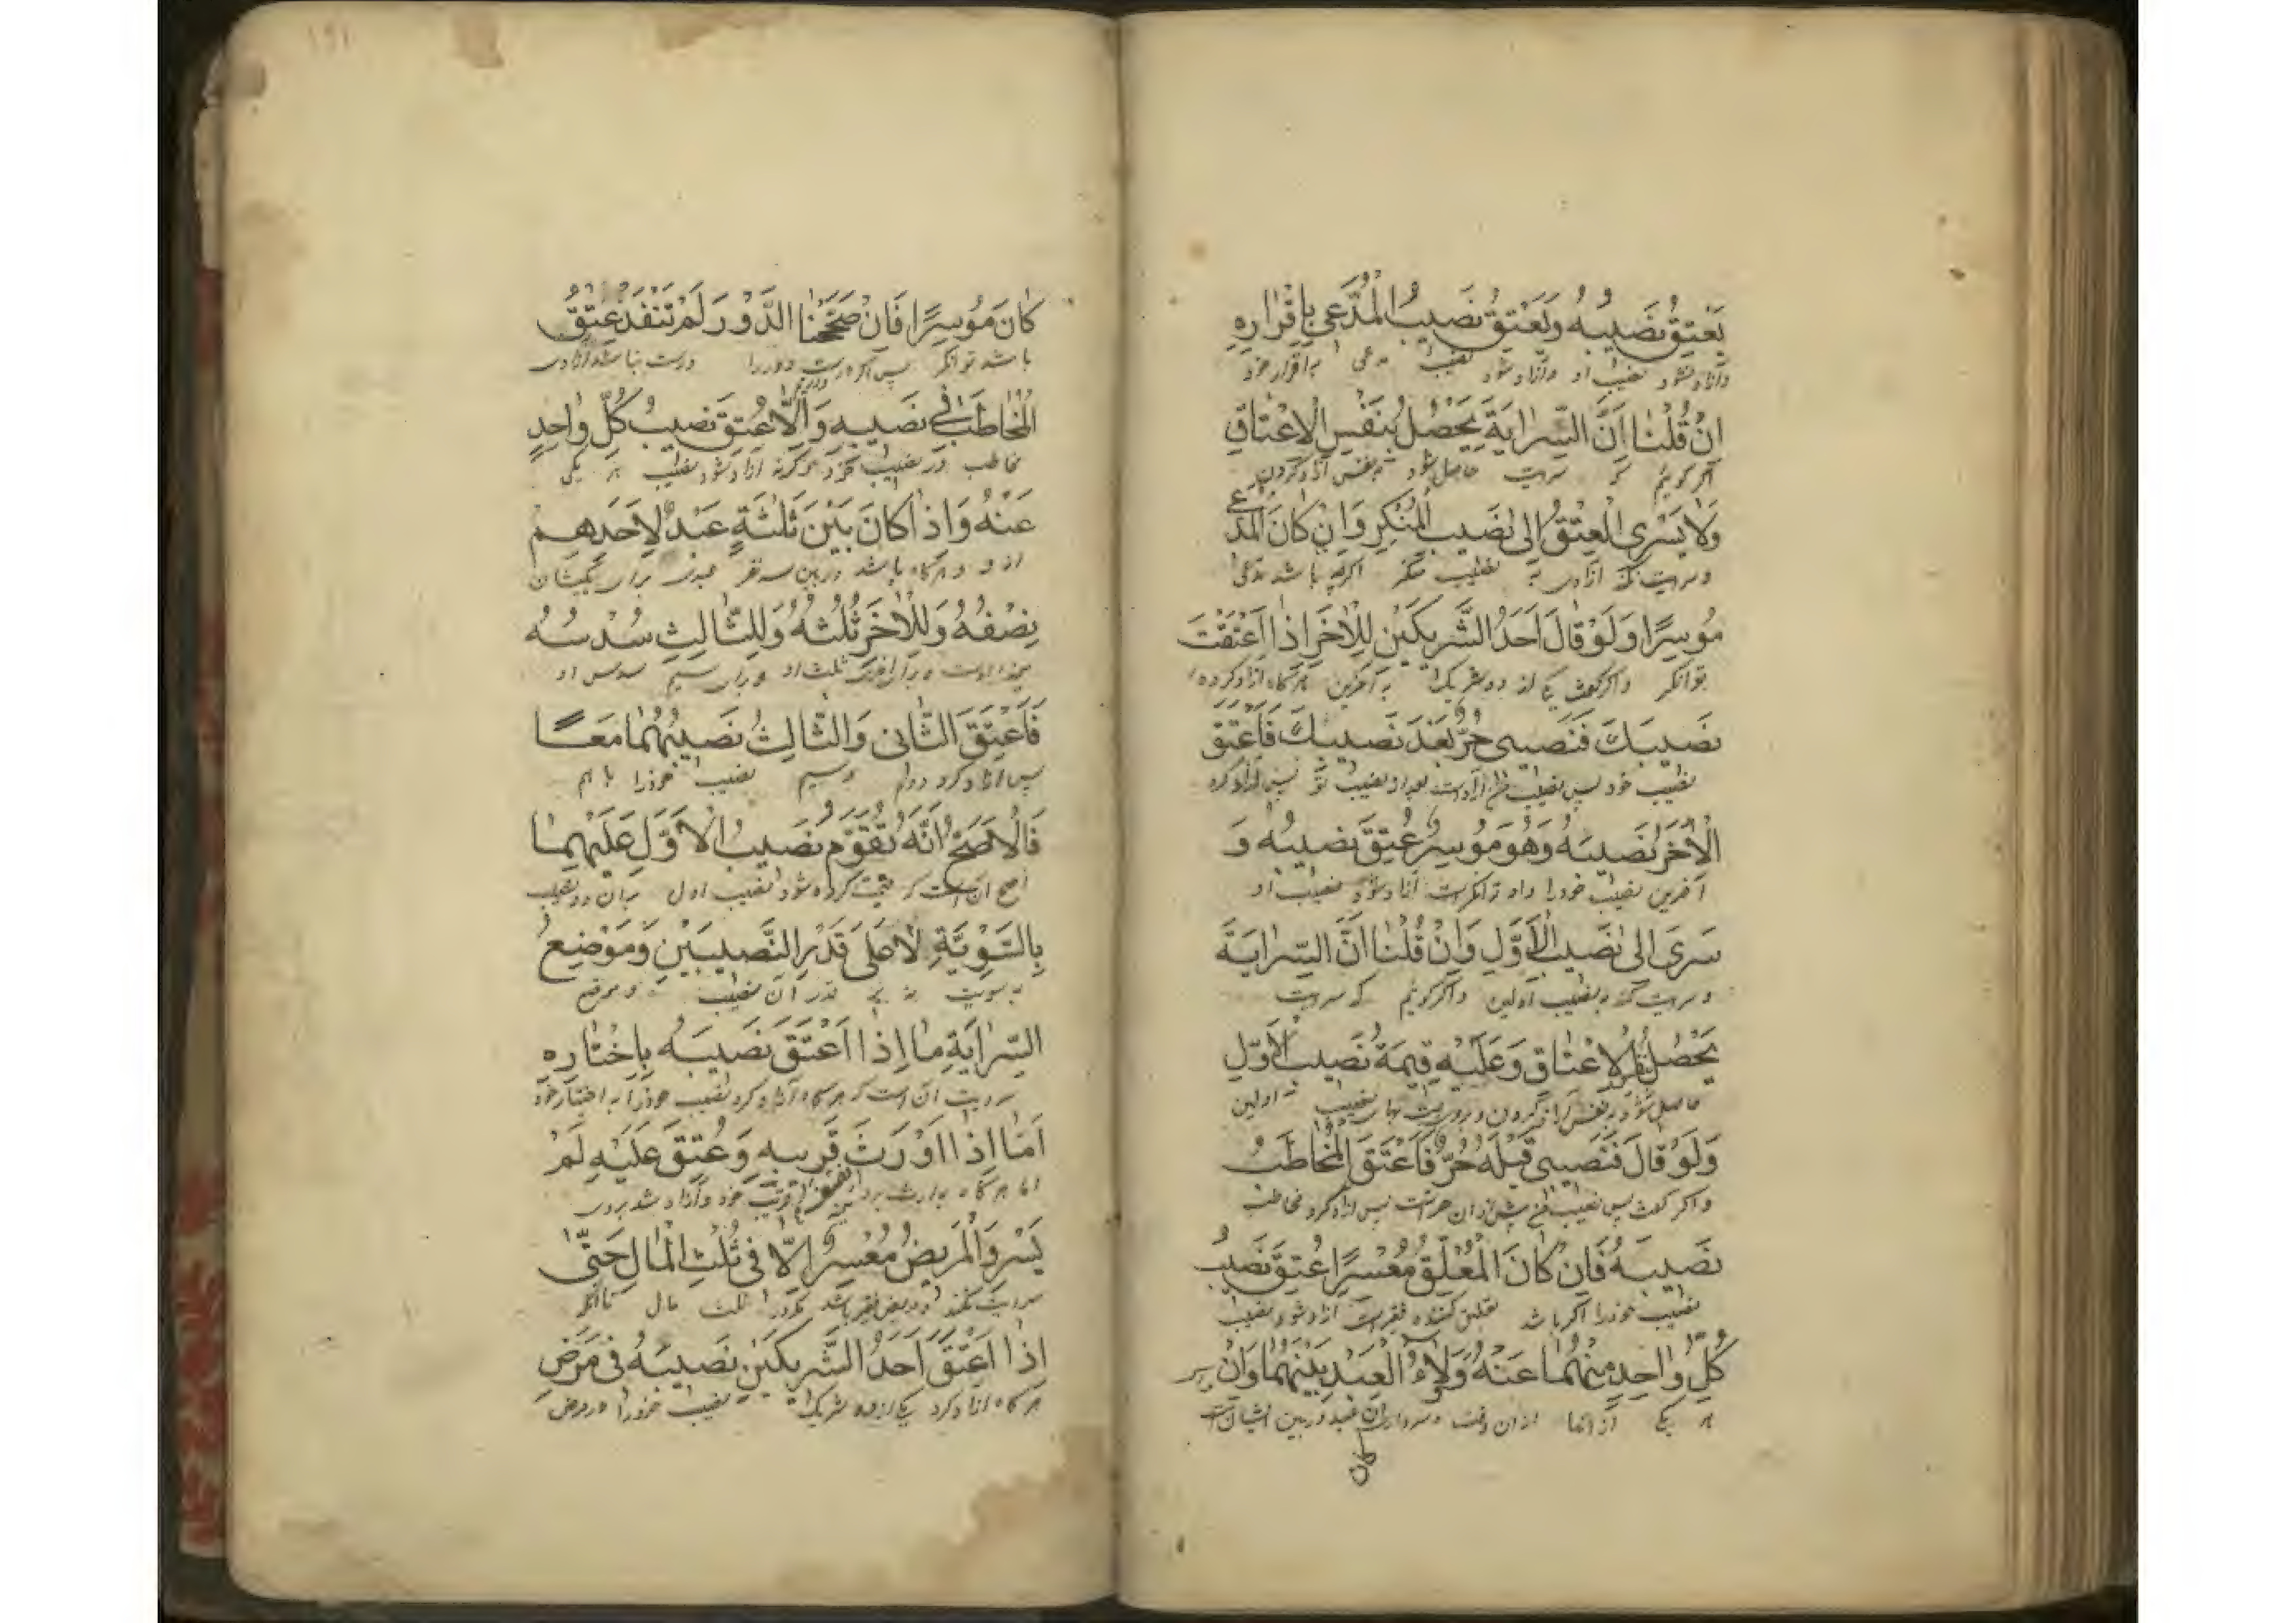 يَعْتِقُ نَصَيبُهُ وَيَعْتِقُ نَصَيبُ الْمُدَّعِي بِاِقْرٰارِهِ
وآزاد نشود نصیب او وآزاد شود نصیب مدعی به اقرار خود
اِنْ قُلْنٰا اَنَّ السِّرٰايَةَ يَحْصُلُ بِنَفْسِ الْاِعْتٰاقِ
اگر گوئیم که سرایت حاصل شود به نفس آزاد کردن
وَلٰا يَسْرِى الْعِتْقُ اِلٰى نَصَيبِ الْمُنْكِرِ وَاِنْ كٰانَ الْمُدَّعِي
وسرایت نکند آزادی به نصیب منکر اگرچه باشد مدعی
مُوسِرًا وَلَوْ قٰالَ اَحَدُ الشَّرِيكَيْنِ لِلْاٰخَرِ اِذٰا اَعْتَقْتَ
توانگر واگر گفت یکی از دو شریک به آخرین هرگاه آزاد کرده
نَصَيبَكَ فَنَصَيبِى حُرٌّ بَعْدَ نَصَيبِكَ فَاَعْتَقَ
نصیب خود پس نصیب من آزادست بعد از نصیب تو پس آزاد کرد
الْاٰخَرُ نَصَيبَهُ وَهُوَ مُوسِرٌ عُتِقَ نَصَيبُهُ وَ
آخرین نصیب خودرا واو توانگرست آزاد شود نصیب او
سَرَى اِلٰى نَصَيبِ الْاَوَّلِ وَاِنْ قُلْنٰا اَنَّ السِّرٰايَةَ
وسرایت کند به نصیب اولین واگر گوئیم که سرایت
يَحْصُلُ بِنَفْسِ الْاِعْتٰاقِ وَعَلَيْهِ قِيمَةُ نَصَيبِ الْاَوَّلِ
حاصل شود به نفس آزاد کردن وبروست بهای نصیب اولین
وَلَوْ قٰالَ فَنَصَيبِى قَبْلَهُ حُرٌّ فَاَعْتَقَ الْمُخٰاطَبُ
واگر گفت پس نصیب من پیش از ان حرست پس آزاد کرد مخاطب
نَصَيبَهُ فَاِنْ كٰانَ الْمُعَلِّقُ مُعْسِرًا عُتِقَ نَصَيبُ
نصیب خودرا اگر باشد تعلیق کننده فقیرست آزاد شود نصیب
كُلِّ وٰاحِدٍ مِنْهُمٰا عَنْهُ وَوَلٰاءُ الْعَبْدِ بَيْنَهُمٰا وَاِنْ
هر یکی از آنها از ان وقت عبد در بین ایشان است
كان
١٩١
كٰانَ مُوسِرًا فَاِنْ صَحَّحْنٰا الدَّوْرَ لَمْ تَنْفُذْ عِتْقُ
باشد توانگر پس اگر درست داریم دوررا درست نباشد آزادی
الْمُخٰاطَبِ فِي نَصَيبِهِ وَاِلّٰا عُتِقَ نَصَيبُ كُلِّ وٰاحِدٍ
مخاطب در نصیب خود وگرنه آزاد شود نصیب هر یکی
عَنْهُ وَاِذٰا كٰانَ بَيْنَ ثَلٰثَةٍ عَبْدٌ لِاَحَدِهِمْ
از و وهرگاه باشد در بین سه نفر عبدی برای یکیشان
نِصْفُهُ وَلِلْاٰخَرِ ثُلُثُهُ وَلِلثّٰالِثِ سُدُسُهُ
وبرای آخرین ثلث او وبرای سیم سدس او
فَاَعْتَقَ الثّٰانِى وَالثّٰالِثُ نَصَيبَهُمٰا مَعًا
پس آزاد کرد دویم وسیم نصیب خودرا باهم
فَالْاَصَحُّ اَنَّهُ تُقَوَّمُ نَصَيبُ الْاَوَّلِ عَلَيْهِمٰا
اصح ان است که قیمت کرده شود نصیب اول بران دو نصیب
بِالسَّوِيَّةِ لٰا عَلٰى قَدْرِ النَّصَيبَيْنِ وَمَوْضِعُ
به سویت نه به قدر آن نصیب وموضع
السِّرٰايَةِ مٰا اِذٰا اَعْتَقَ نَصَيبَهُ بِاِخْتٰارِهِ
سرایت ان است که هرگاه آزاد کرد نصیب خودرا به اختیار خود
اَمّٰا اِذٰا اَوْرَثَ قَرِيبِهِ وَعُتِقَ عَلَيْهِ لَمْ
اما هرگاه به ارث برد قریب خود وآزاد شد بروی
يَسْرِ وَالْمَرِيضُ مُعْسِرٌ اِلّٰا فِى ثُلُثِ الْمٰالِ حَتّٰى
سرایت نکند ومریض فقیر باشد مگر در ثلث مال تا انکه
اِذٰا اَعْتَقَ اَحَدُ الشَّرِيكَيْنِ نَصَيبَهُ فِى مَرَضِ
هرگاه آزاد کرد یکی از دو شریک نصیب خودرا در مرض